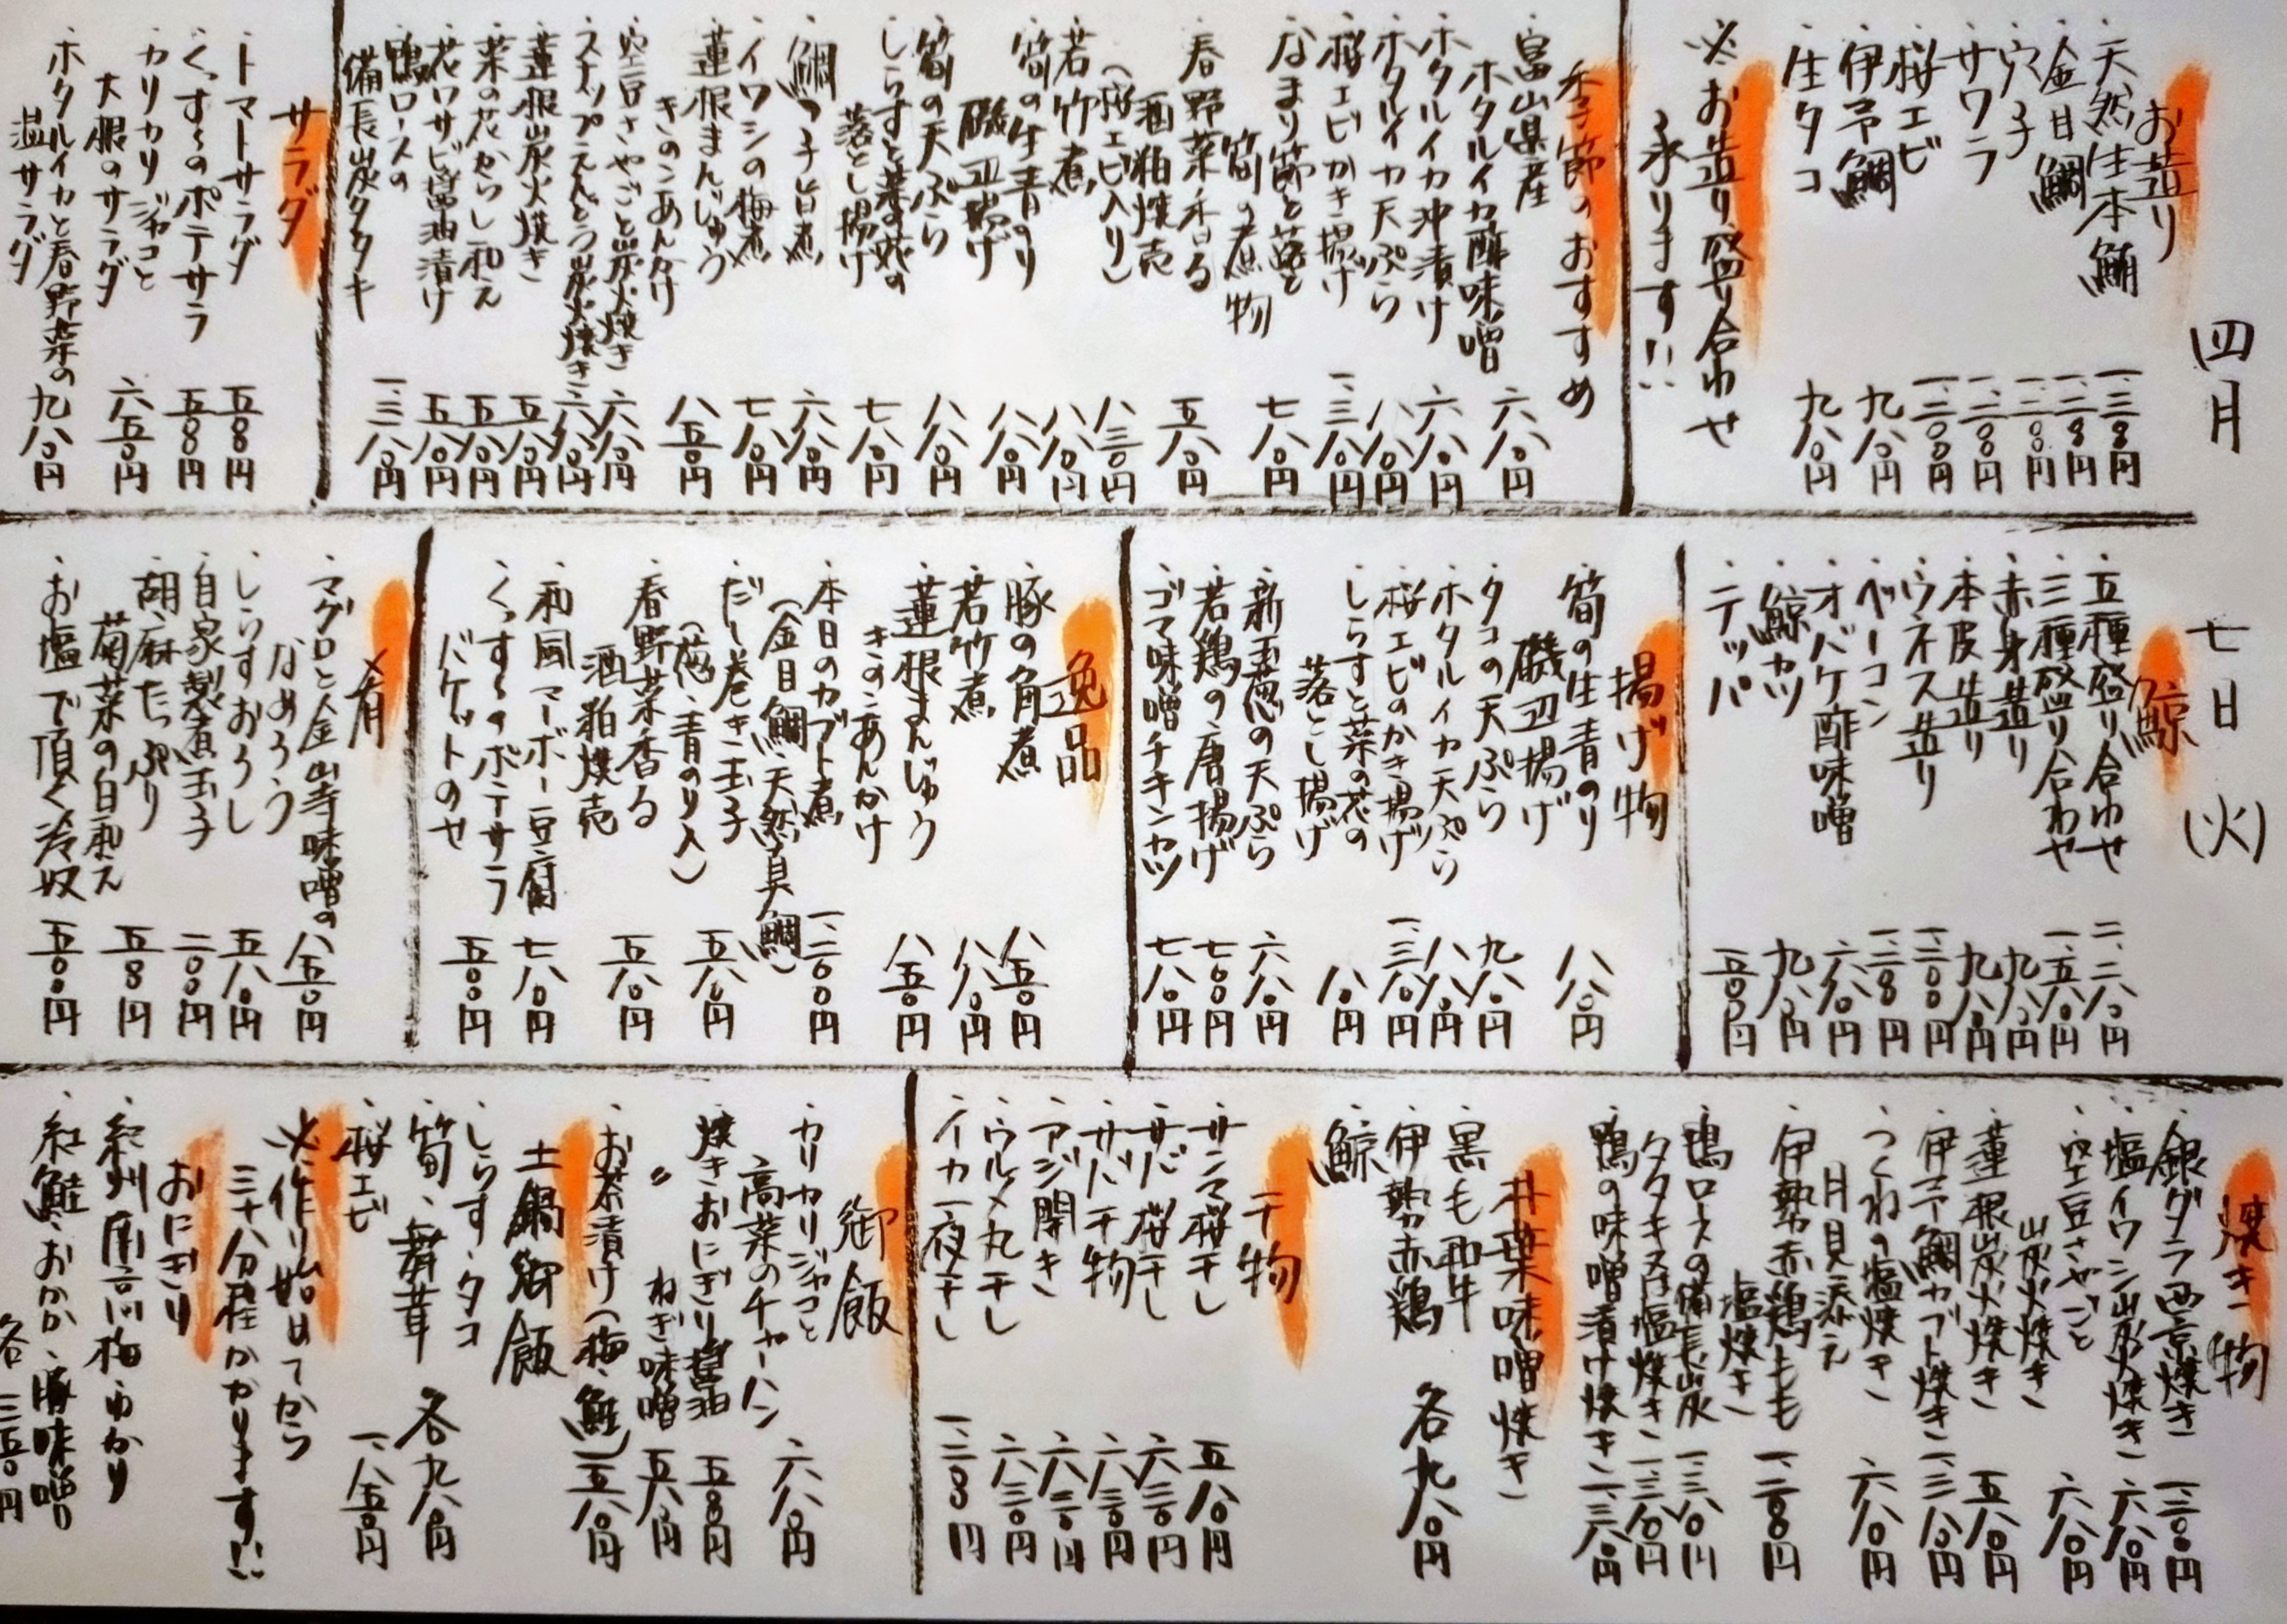 四月
七日
(火)
お造り
・天然生本鮪 一、二〇〇円
・金目鯛 一、二〇〇円
・穴子 一、二〇〇円
・サワラ 一、二〇〇円
・桜エビ 一、二〇〇円
・伊予鯛 九八〇円
・生タコ 九八〇円
※お造り盛り合わせ
承ります!!
季節のおすすめ
・富山県産
ホタルイカ酢味噌 六八〇円
・ホタルイカ沖漬け 六八〇円
・ホタルイカ天ぷら 八八〇円
・桜エビかき揚げ 一、三八〇円
・なまり節と蕗と
筍の煮物 七八〇円
・春野菜香る
酒粕焼売 五八〇円
(桜エビ入り) 八三〇円
・若竹煮 八八〇円
・筍の生青のり
磯辺揚げ 八八〇円
・筍の天ぷら 八八〇円
・しらすと菜の花の
落とし揚げ 七八〇円
・鯛つ子旨煮 六八〇円
・イワシの梅煮 七八〇円
・蓮根まんじゅう
きのこあんかけ 八五〇円
・空豆さやごと炭火焼き 六八〇円
・スナップえんどう炭火焼き 六八〇円
・蓮根炭火焼き 五八〇円
・菜の花からし和え 五八〇円
・花ワサビ醤油漬け 五八〇円
・鴨ロースの
備長炭タタキ 一、三八〇円
サラダ
・トマトサラダ 五〇〇円
・くっすぅのポテサラ 五〇〇円
・カリカリジャコと
大根のサラダ 六五〇円
・ホタルイカと春野菜の
温サラダ 九八〇円
鯨
・五種盛り合わせ 二、二八〇円
・三種盛り合わせ 一、五八〇円
・赤身造り 九八〇円
・本皮造り 九八〇円
・ウネス造り 一、二〇〇円
・ベーコン 一、二〇〇
・オバケ酢味噌 六八〇円
・鯨カツ 九八〇円
・テッパ 一五〇〇円
揚げ物
・筍の生青のり
磯辺揚げ 八八〇円
・タコの天ぷら 九八〇円
・ホタルイカ天ぷら 八八〇円
・桜エビのかき揚げ 一、三八〇円
・しらすと菜の花の
落とし揚げ
・新玉葱の天ぷら 六八〇円
・若鶏の唐揚げ 七〇〇円
・ゴマ味噌チキンカツ 七八〇円
逸品
・豚の角煮 八五〇円
・若竹煮 八八〇円
・蓮根まんじゅう
きのこあんかけ 八五〇円
・本日のカブト煮 一、二〇〇円
(金目鯛、天然真鯛)
・だし巻き玉子 五八〇円
(葱・青のり入)
・春野菜香る
酒粕焼売 五八〇円
・和風マーボー豆腐 七八〇円
・くっすぅのポテサラ
バケットのせ 五〇〇円
肴
・マグロと金山寺味噌の
なめろう 八五〇円
・しらすおろし 五八〇円
・自家製煮玉子 二〇〇円
・胡麻たっぷり
菊菜の白和え 五〇〇円
・お塩で頂く冷奴 五〇〇円
焼き物
・銀ダラ西京焼き 一、二〇〇円
・塩イワシ炭火焼き 六八〇円
・空豆さやごと
炭火焼き 六八〇円
・蓮根炭火焼き 五八〇円
・伊予鯛カブト焼き 一、三八〇円
・つくねの塩焼き
月見添え 六八〇円
・伊勢赤鶏もも
塩焼き 一、二〇〇円
・鴨ロースの備長炭
タタキ 一、三八〇円
・塩焼き 一、三八〇円
・鴨の味噌漬け焼き 一、三八〇円
朴葉味噌焼き
・黒毛和牛
・伊勢赤鶏
・鯨
各九八〇円
干物
・サンマ桜干し 五八〇円
・サバ桜干し 六三〇円
・サバ干物 六三〇円
・アジ開き 六三〇円
・ウルメ丸干し 六三〇円
・イカ一夜干し 一、二〇〇円
御飯
・カリカリジャコと
高菜のチャーハン 六八〇円
・焼きおにぎり醤油 五〇〇円
〃 ねぎ味噌 五八〇円
・お茶漬け(梅、鮭) 五八〇円
土鍋御飯
・しらす・タコ
筍、舞茸 各九八〇円
・桜エビ 一、八五〇円
※作り始めてから
三十八分程かかります!!
おにぎり
・紀州南高梅・ゆかり
・紅鮭・おかか・豚味噌
各三五〇円